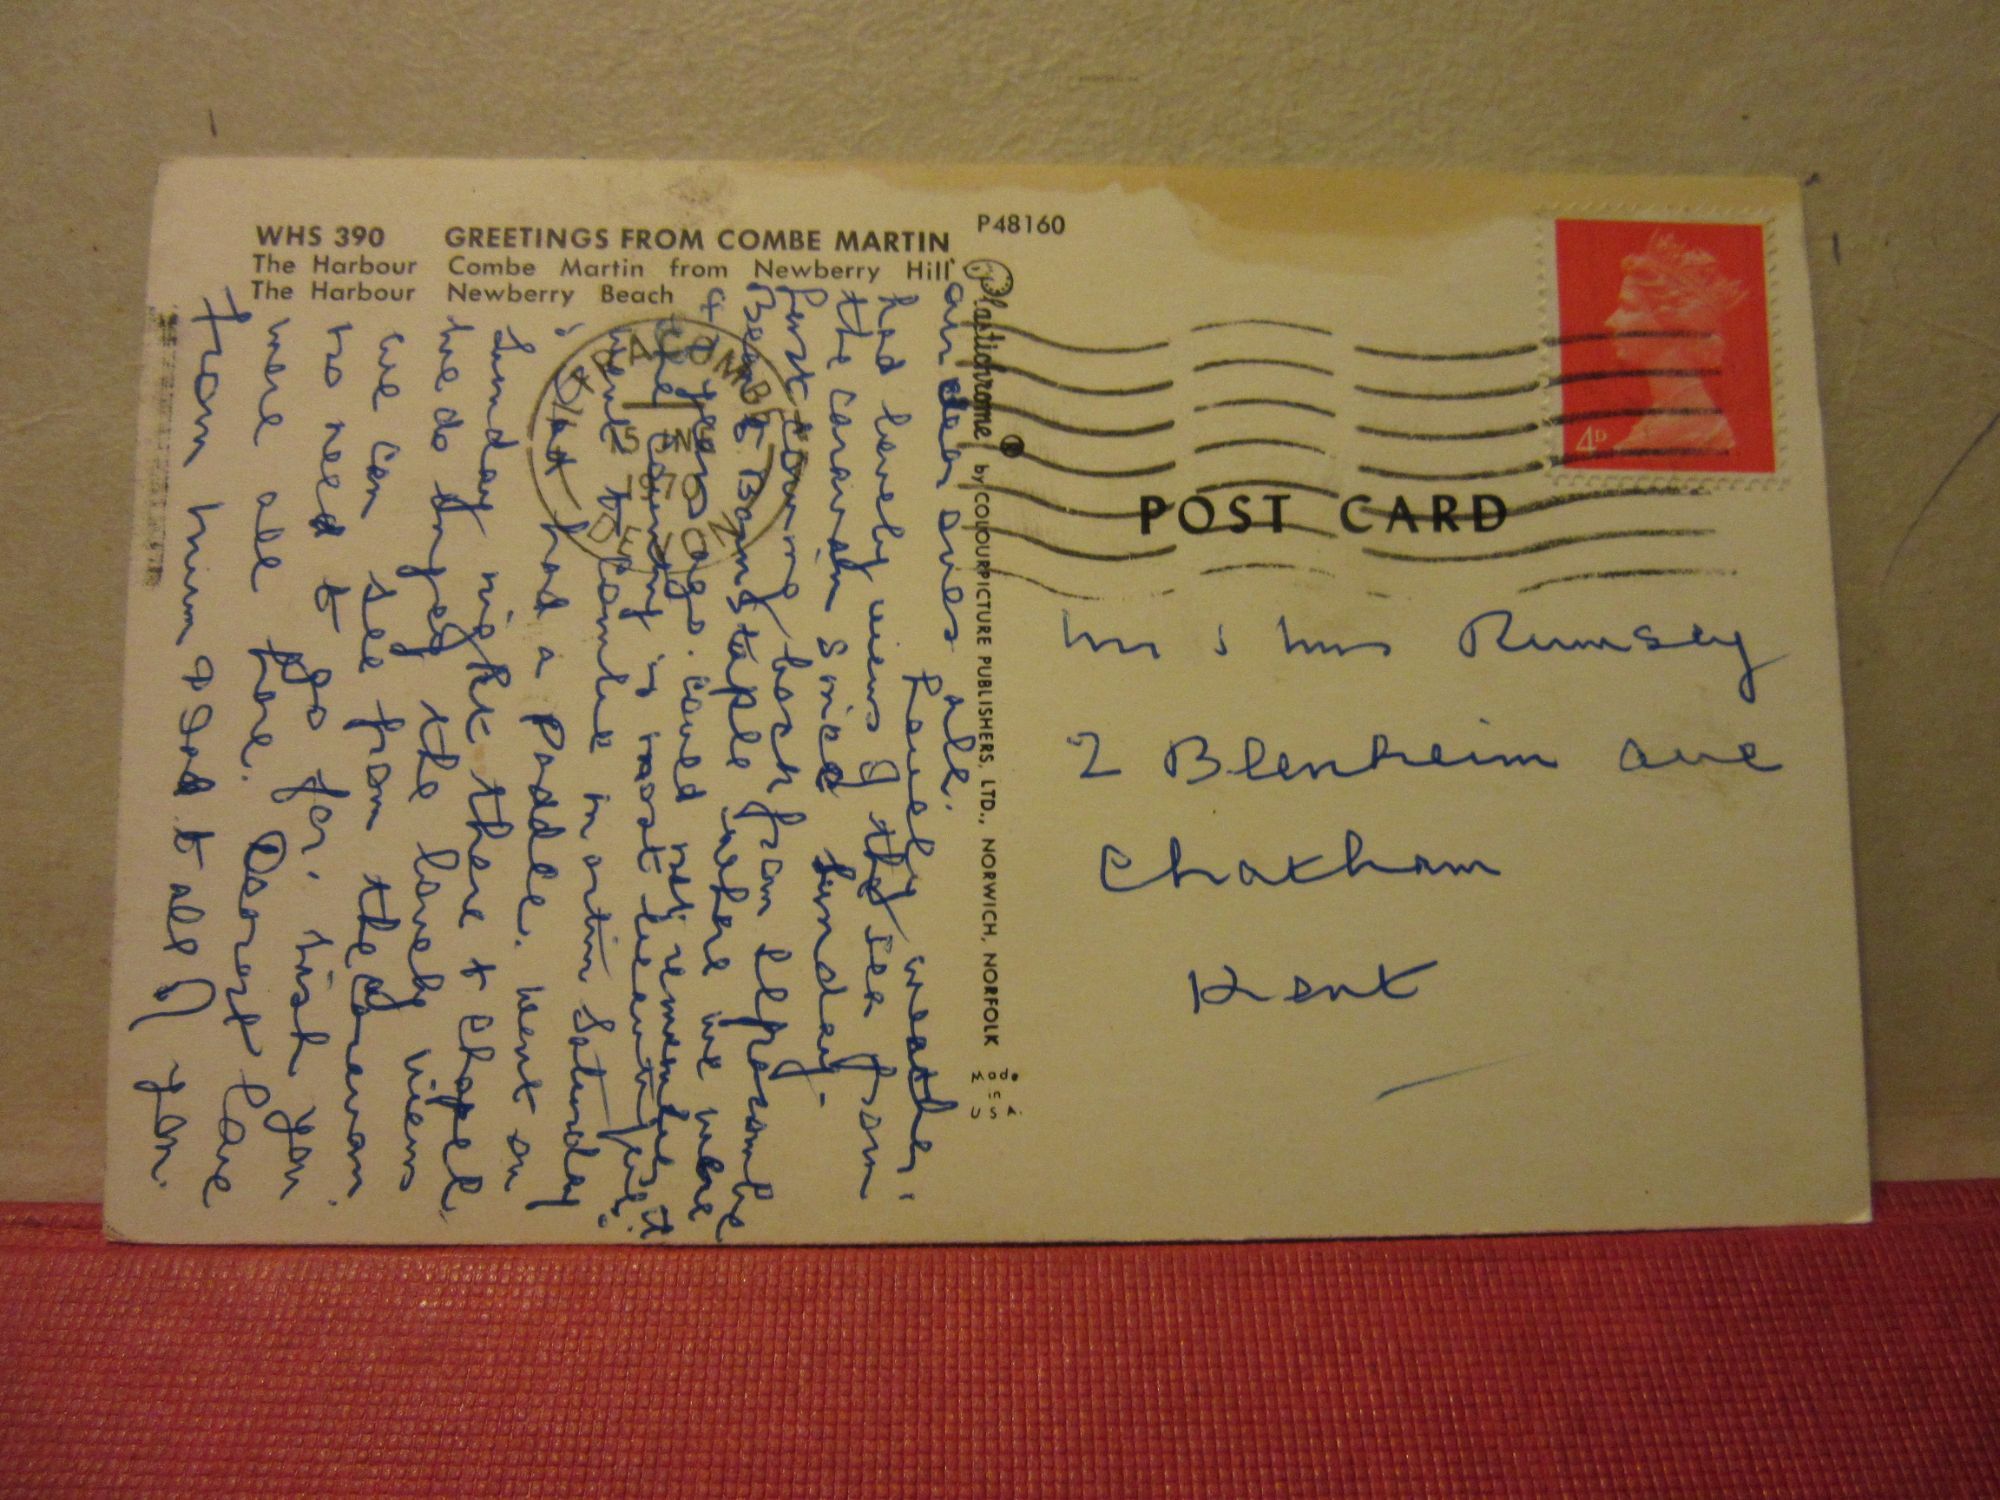 WHS 390 GREETINGS FROM COMBE MARTIN
The Harbour Combe Martin from Newberry Hill
The Harbour Newberry Beach
P48160
Plastichrome ® by COLOURPICTURE PUBLISHERS, LTD., NORWICH, NORFOLK
Made in USA.
POST CARD
4D
ILFRACOMBE
15 JNE
1970
DEVON
Mr & Mrs Rumsey
2 Blenheim Ave
Chatham
Kent
Our dear ones all.
Lovely weather.
had lovely views of the sea from
the caravan since Sunday.
Just coming back from Ilfracombe
Been to Barnstaple where we were
years ago. Could not remember it
The country is most beautiful.
Went to Combe Martin Saturday
& Dad had a Paddle. Went on
Sunday night there to Chapel.
We do enjoy the lovely views
we can see from the Caravan.
no need to go far. Wish you
were all here. Dearest Love
From Mum & Dad to all of you.